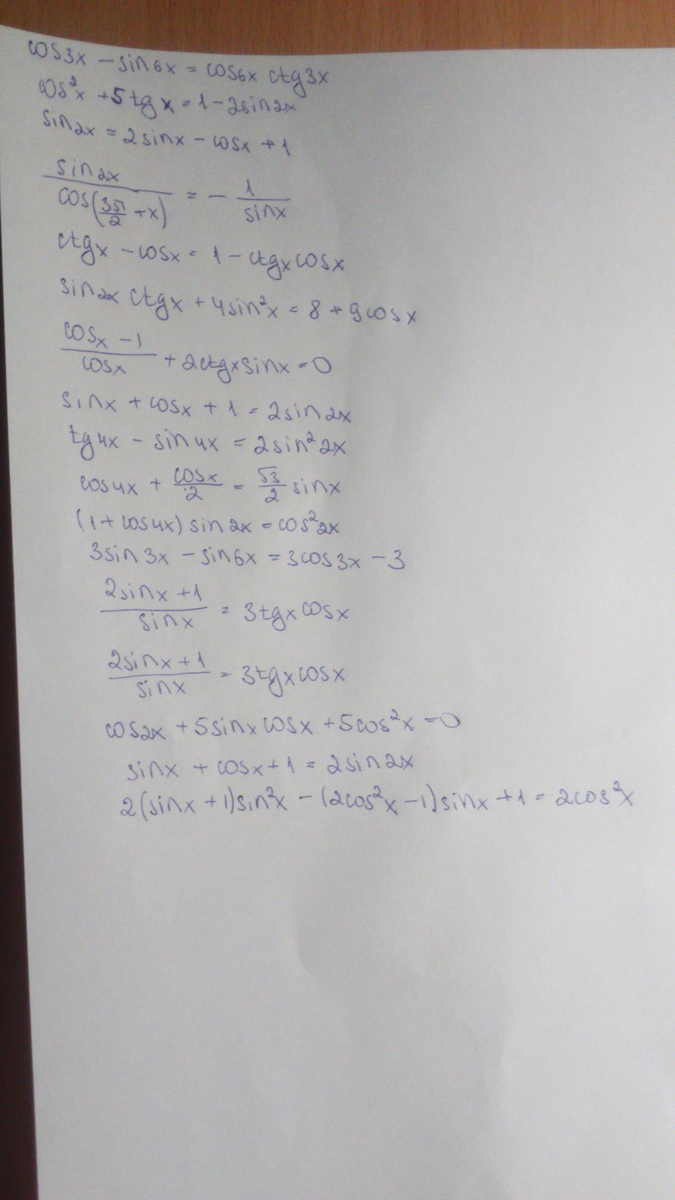 cos3x - sin6x = cos6x ctg3x
cos²x + 5tgx = 1 - 2sin2x
sin2x = 2sinx - cosx + 1
sin2x / cos(3π/2 + x) = - 1/sinx
ctgx - cosx = 1 - ctgx cosx
sin2x ctgx + 4sin²x = 8 + 9cosx
(cosx - 1)/cosx + 2ctgx sinx = 0
sinx + cosx + 1 = 2sin2x
tg4x - sin4x = 2sin²2x
cos4x + cosx/2 = √3/2 sinx
(1 + cos4x) sin2x = cos²2x
3sin3x - sin6x = 3cos3x - 3
(2sinx + 1)/sinx = 3tgx cosx
(2sinx + 1)/sinx = 3tgx cosx
cos2x + 5sinx cosx + 5cos²x = 0
sinx + cosx + 1 = 2sin2x
2(sinx + 1)sin²x - (2cos²x - 1)sinx + 1 = 2cos²x